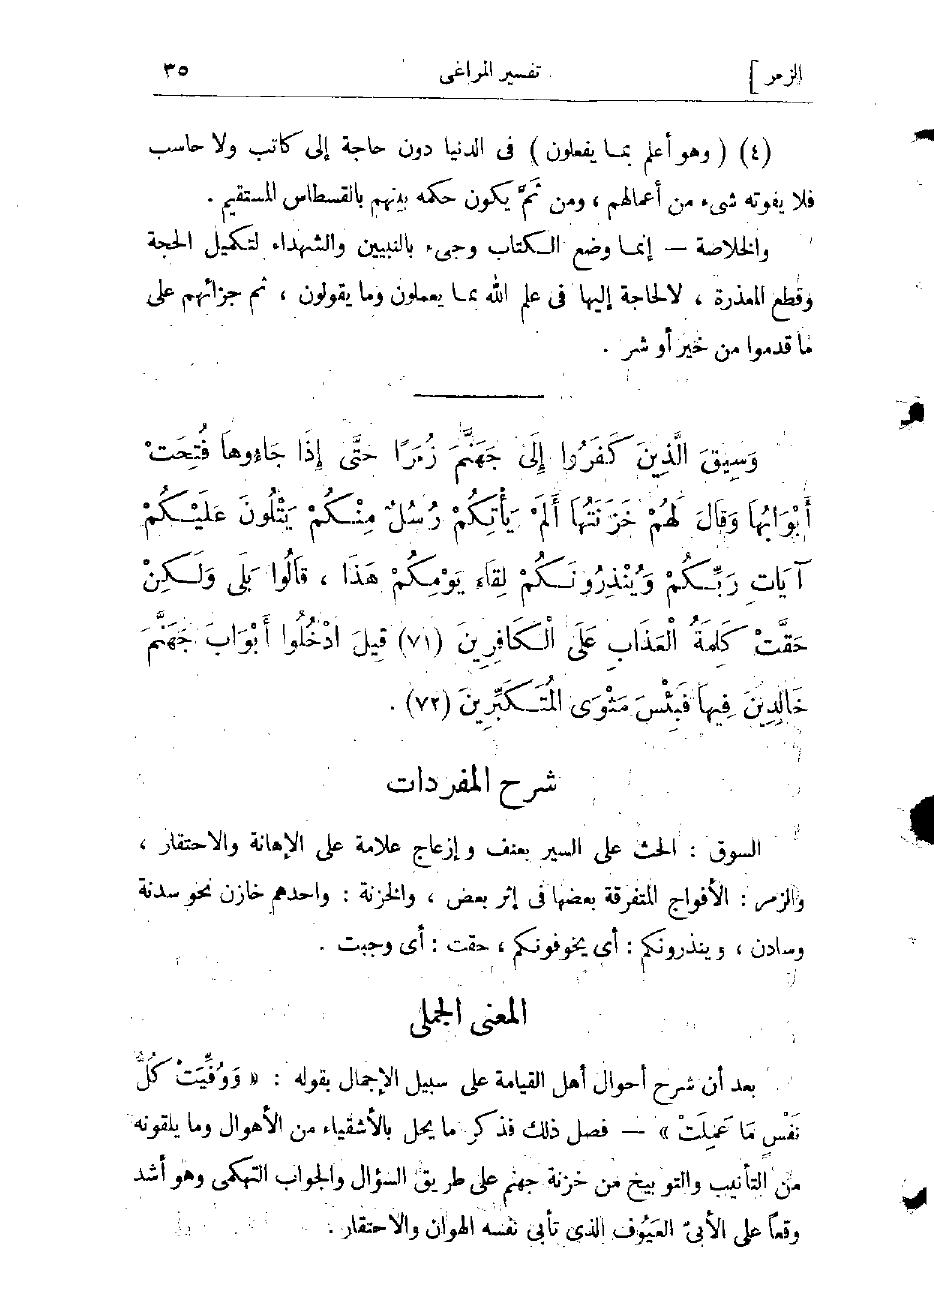 الزمر ] تفسير المراغى ٣٥
(٤) ( وهو أعلم بما يفعلون ) فى الدنيا دون حاجة إلى كاتب ولا حاسب
فلا يفوته شىء من أعمالهم ، ومن ثَمَّ يكون حكمه بينهم بالقسطاس المستقيم .
والخلاصة — إنما وضع الكتاب وجىء بالنبيين والشهداء لتكميل الحجة
وقطع المعذرة ، لالحاجة إليها فى علم الله بما يعملون وما يقولون ، ثم جزائهم على
ما قدموا من خير أو شر .
وَسِيقَ الَّذِينَ كَفَرُوا إِلَى جَهَنَّمَ زُمَرًا حَتَّى إِذَا جَاءُوهَا فُتِحَتْ
أَبْوَابُهَا وَقَالَ لَهُمْ خَزَنَتُهَا أَلَمْ يَأْتِكُمْ رُسُلٌ مِنْكُمْ يَتْلُونَ عَلَيْكُمْ
آيَاتِ رَبِّكُمْ وَيُنْذِرُونَكُمْ لِقَاءَ يَوْمِكُمْ هَذَا ، قَالُوا بَلَى وَلَكِنْ
حَقَّتْ كَلِمَةُ الْعَذَابِ عَلَى الْكَافِرِينَ (٧١) قِيلَ ادْخُلُوا أَبْوَابَ جَهَنَّمَ
خَالِدِينَ فِيهَا فَبِئْسَ مَثْوَى الْمُتَكَبِّرِينَ (٧٢) .
شرح المفردات
السوق : الحث على السير بعنف وإزعاج علامة على الإهانة والاحتقار ،
والزمر : الأفواج المتفرقة بعضها فى إثر بعض ، والخزنة : واحدهم خازن نحو سدنة
وسادن ، وينذرونكم : أى يخوفونكم ، حقت : أى وجبت .
المعنى الجملى
بعد أن شرح أحوال أهل القيامة على سبيل الإجمال بقوله : « وَوُفِّيَتْ كُلُّ
نَفْسٍ مَا عَمِلَتْ » — فصل ذلك فذكر ما يحل بالأشقياء من الأهوال وما يلقونه
من التأنيب والتوبيخ من خزنة جهنم على طريق السؤال والجواب التهكمى وهو أشد
وقعاً على الأبىّ العَيُوف الذى تأبى نفسه الهوان والاحتقار .